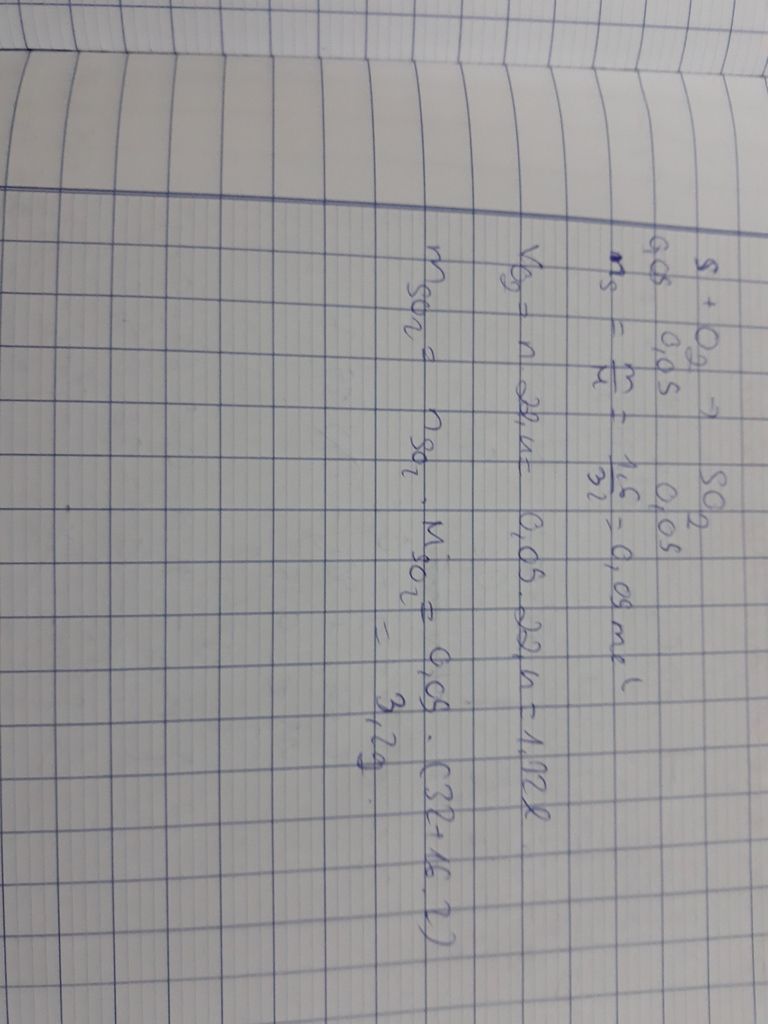 S + O2 → SO2
0,05 0,05 0,05
nS = m/M = 1,6/32 = 0,05 mol
VO2 = n.22,4 = 0,05.22,4 = 1,12l
mSO2 = nSO2 . MSO2 = 0,05 . (32+16.2)
= 3,2g